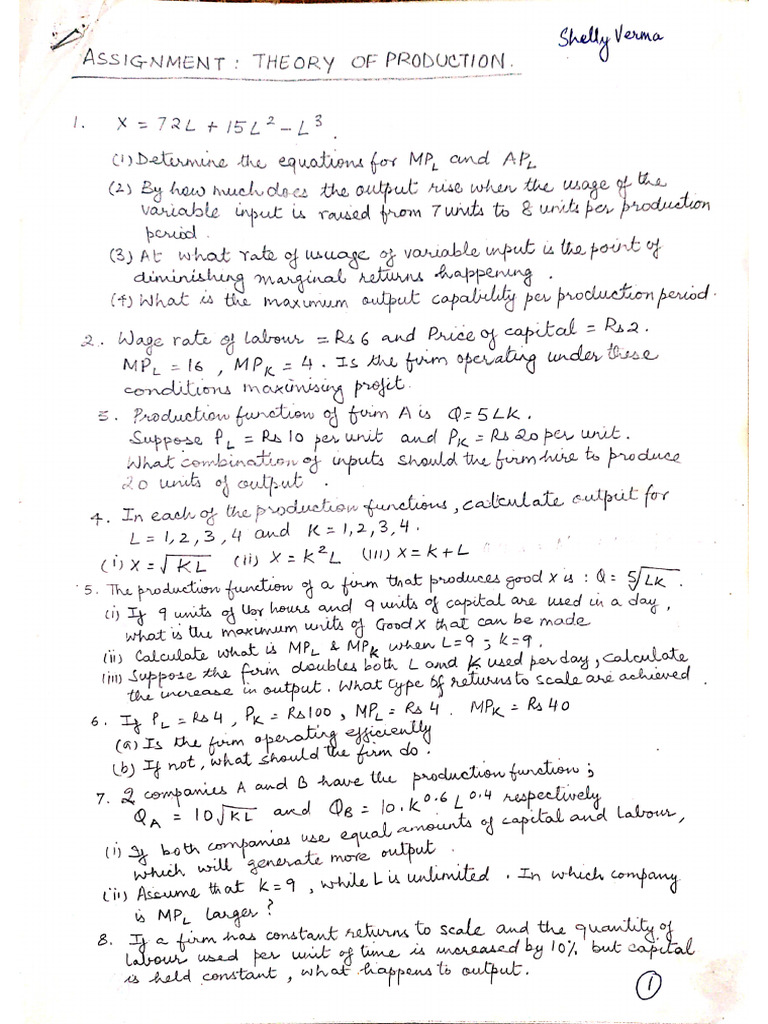 Shelly Verma
ASSIGNMENT : THEORY OF PRODUCTION.
1. X = 72L + 15L² - L³.
(1) Determine the equations for MP_L and AP_L
(2) By how much does the output rise when the usage of the
variable input is raised from 7 units to 8 units per production
period.
(3) At what rate of usuage of variable input is the point of
diminishing marginal returns happening.
(4) What is the maximum output capability per production period.
2. Wage rate of labour = Rs 6 and Price of capital = Rs 2.
MP_L = 16, MP_K = 4. Is the firm operating under these
conditions maximising profit.
3. Production function of firm A is Q = 5LK.
Suppose P_L = Rs 10 per unit and P_K = Rs 20 per unit.
What combination of inputs should the firm hire to produce
20 units of output.
4. In each of the production functions, calculate output for
L = 1, 2, 3, 4 and K = 1, 2, 3, 4.
(i) X = √KL (ii) X = K²L (iii) X = K + L
5. The production function of a firm that produces good X is : Q = 5√LK.
(i) If 9 units of lbr hours and 9 units of capital are used in a day,
what is the maximum units of Good X that can be made
(ii) Calculate what is MP_L & MP_K when L=9 ; K=9.
(iii) Suppose the firm doubles both L and K used per day, calculate
the increase in output. What type of returns to scale are achieved.
6. If P_L = Rs 4, P_K = Rs 100, MP_L = Rs 4. MP_K = Rs 40
(a) Is the firm operating efficiently
(b) If not, what should the firm do.
7. 2 companies A and B have the production function ;
Q_A = 10√KL and Q_B = 10.K^0.6 L^0.4 respectively
(i) If both companies use equal amounts of capital and labour,
which will generate more output.
(ii) Assume that K = 9, while L is unlimited. In which company
is MP_L larger?
8. If a firm has constant returns to scale and the quantity of
labour used per unit of time is increased by 10% but capital
is held constant, what happens to output.
1